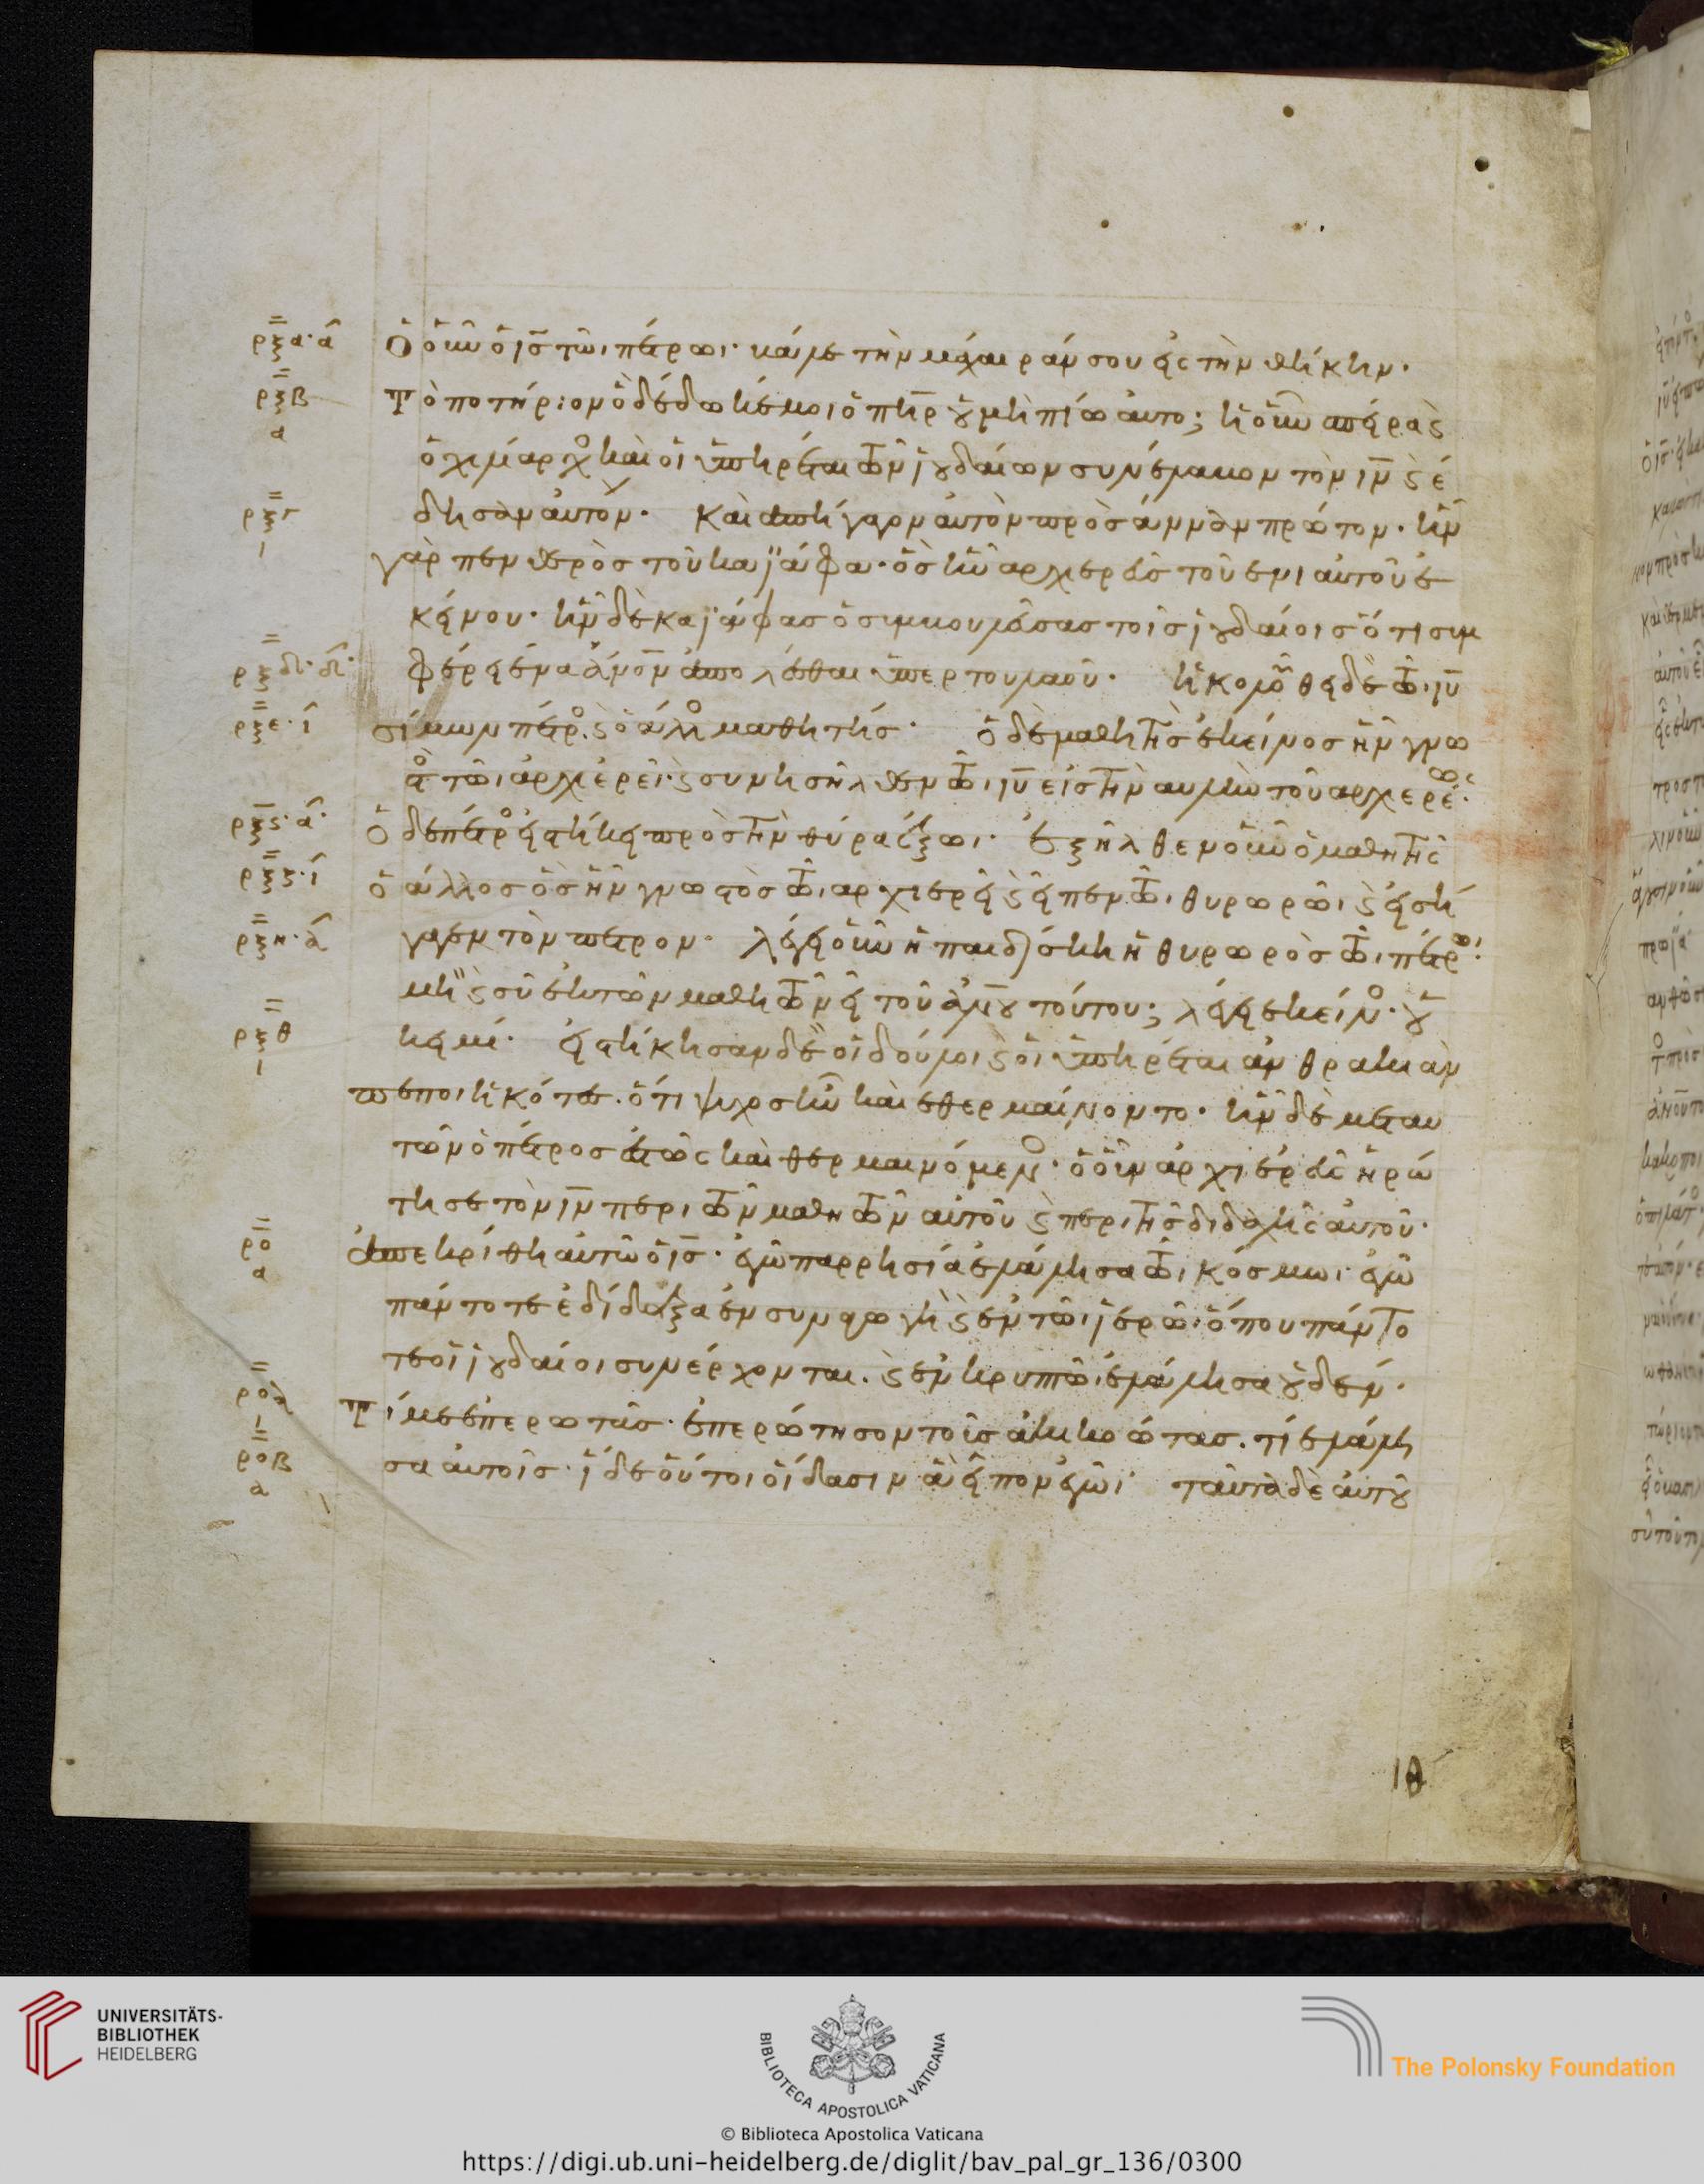 ρξα· α̂ Ὁ οὖν ὁ ις̅ τῶι πέτρωι· βάλε τὴν μάχαιράν σου εἰς τὴν θήκην·
ρξβ α Τὸ ποτήριον ὃ δέδωκέ μοι ὁ πη̅ρ οὐ μὴ πίω αὐτό; ἡ οὖν σπεῖρα ϗ
ὁ χιλίαρχο καὶ οἱ ὑπηρέται τῶν ἰουδαίων συνέλαβον τὸν ιν̅ ϗ ἔ
ρξγ ι δησαν αὐτόν· Καὶ ἀπήγαγον αὐτὸν πρὸς ἄνναν πρῶτον· ἦν
γὰρ πενθερὸς τοῦ καϊάφα· ὃς ἦν ἀρχιερεὺς τοῦ ἐνιαυτοῦ ἐ
κείνου· ἦν δὲ καϊάφας ὁ συμβουλεύσας τοῖς ἰουδαίοις ὅτι συμ
ρξδ· δ· φέρει ἕνα ἄν̅ον ἀπολέσθαι ὑπὲρ τοῦ λαοῦ· ἠκολούθει δὲ τῶι ιυ̅
ρξε· ι̂ σίμων πέτρο ϗ ὁ ἄλλο μαθητής· ὁ δὲ μαθητὴς ἐκεῖνος ἦν γνω
στὸ τῶι ἀρχιερεῖ· ϗ συνησῆλθεν τῶι ιυ̅ εἰς τὴν αὐλὴν τοῦ ἀρχιερέως·
ρξϛ· α̂· Ὁ δὲ πέτρο εἱστήκει πρὸς τὴν θύρα ἔξωι· Ἐξῆλθεν οὖν ὁ μαθητὴς
ρξζ· ι̂ ὁ ἄλλος ὃς ἦν γνωστὸς τῶι ἀρχιερεῖ ϗ εἶπεν τῶι θυρωρῶι ϗ εἰσή
ρξη· α̂ γαγεν τὸν πέτρον· λέγει οὖν ἡ παιδίσκη ἡ θυρωρὸς τῶι πέτρω·
μὴ ϗ σὺ ἐκ τῶν μαθητῶν εἶ τοῦ ἀν̅ου τούτου; λέγει ἐκεῖνο· οὐ
ρξθ ι κ εἰμί· εἱστήκησαν δὲ οἱ δοῦλοι ϗ οἱ ὑπηρέται ἀνθρακιὰν
πεποιηκότες· ὅτι ψύχος ἦν καὶ ἐθερμαίνοντο· ἦν δὲ μετ αὐ
τῶν ὁ πέτρος ἑστὼς καὶ θερμαινόμενο· ὁ οὖν ἀρχιερεὺς ἠρώ
τησε τὸν ιν̅ περὶ τῶν μαθητῶν αὐτοῦ ϗ περὶ τῆς διδαχῆς αὐτοῦ·
ρο α ἀπεκρίθη αὐτῶ ὁ ις̅· ἐγὼ παρρησία ἐλάλησα τῶι κόσμωι· ἐγὼ
πάντοτε ἐδίδαξα ἐν συναγωγῆ ϗ ἐν τῶι ἱερῶι· ὅπου πάντο
τε οἱ ἰουδαῖοι συνέρχονται· ϗ ἐν κρυπτῶι ἐλάλησα οὐδέν·
ροα ι Τί με ἐπερωτᾶς· ἐπερώτησον τοὺς ἀκηκοότας· τί ἐλάλη
ροβ α σα αὐτοῖς· ἴδε οὗτοι οἴδασιν ἃ εἶπον ἐγώ· ταῦτα δὲ αὐτοῦ
ιθ
UNIVERSITÄTS-
BIBLIOTHEK
HEIDELBERG
BIBLIOTECA APOSTOLICA VATICANA
The Polonsky Foundation
© Biblioteca Apostolica Vaticana
https://digi.ub.uni-heidelberg.de/diglit/bav_pal_gr_136/0300